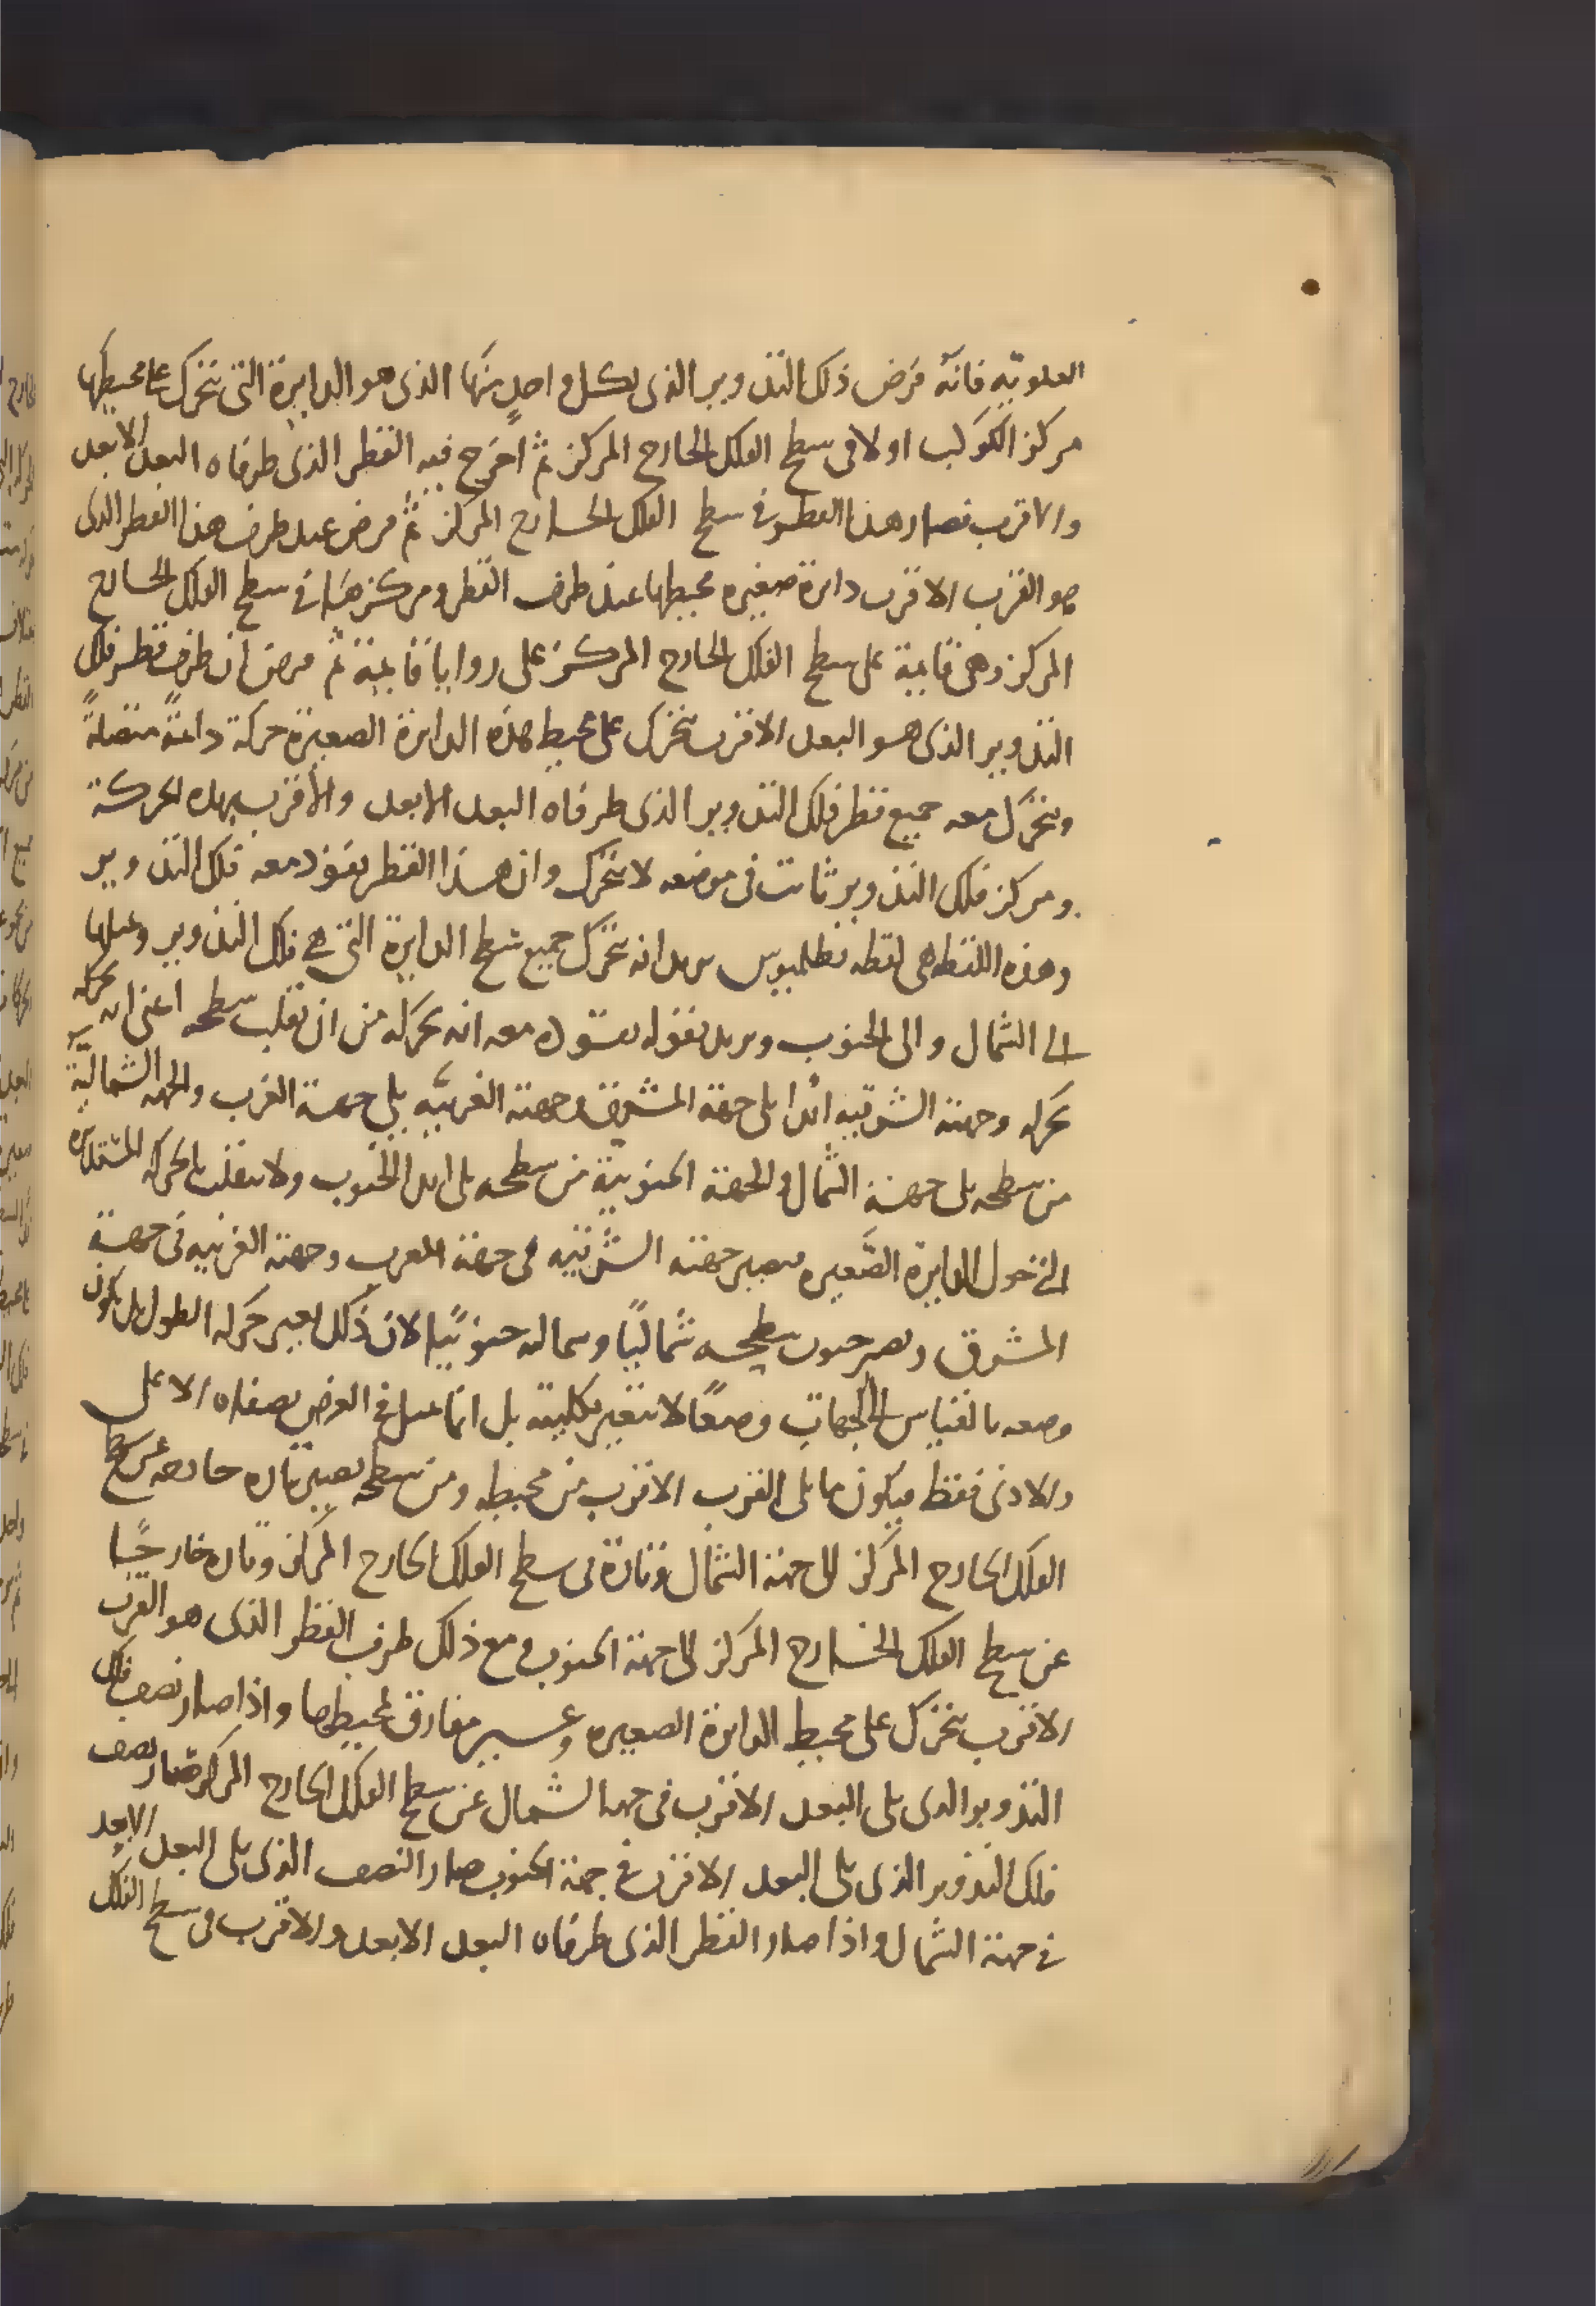 العلويّه فانّه فرض ذلك التدوير الذى لكل واحدٍ منها الذى هو الدايرة التى تتحرك على محيطها
مركز الكوكب اولا فى سطح الفلك الخارج المركز ثم اخرج فيه القطر الذى طرفاه البعد الابعد
والاقرب فصار هذا القطر فى سطح الفلك الخارج المركز ثم فرض عند طرف هذا القطر الذى
هو القرب الاقرب دائرة صغيره محيطها عند طرف القطر ومركزها فى سطح الفلك الخارج
المركز وهى قايمة على سطح الفلك الخارج المركز على زوايا قايمة ثم فرض ان طرف قطر فلك
التدوير الذى هو البعد الاقرب يتحرك على محيط هذه الدائرة الصغيرة حركة دائمةً متصلةً
ويتحرك معه جميع قطر فلك التدوير الذى طرفاه البعد الابعد والأقرب بهذه الحركة
ومركز فلك التدوير ثابت فى موضعه لا يتحرك وان هذا القطر يقود معه فلك التدوير
وهذه اللفظه هى لفظه بطلميوس يريد انه يتحرك جميع سطح الدايرة التى هى فلك التدوير وميلها
الى الشمال والى الجنوب ويريد بقوله يقوده معه انه يحركه من ان تقلب سطحه اعنى انه يحركه
يحركه وجهته الشرقيه ابدا يلى جهة المشرق وجهته الغربيّه يلى جهة الغرب والجهه الشماليّة
من سطحه يلى جهة الشمال والجهة الجنوبيّة من سطحه يلى ابدا الجنوب ولا ينقلب بالحركه المستديره
الى حول الدايرة الصَّغيره فيصير جهته الشرقيه فى جهة المغرب وجهته الغربيه فى جهة
المشرق ويصير جنوب سطحه شماليًا وشماله جنوبيًا لان ذلك يغير حركه الطول بل يكون
وضعه بالقياس الى الجهات وضعًا لا يتغير بكليته بل انما يميل فى العرض نصفاه الاعلى
والادنى فقط فيكون ما يلى القرب الاقرب من محيطه ومن سطحه يصير تاره خارجه عن سطح
الفلك الخارج المركز الى جهة الشمال وتارة فى سطح الفلك الخارج المركز وتاره خارجًا
عن سطح الفلك الخارج المركز الى جهة الجنوب ومع ذلك طرف القطر الذى هو القرب
الاقرب يتحرك على محيط الدايرة الصغيره وغير مفارق لمحيطها واذا صار نصف فلك
التدوير الذى يلى البعد الاقرب فى جهة الشمال عن سطح الفلك الخارج المركز صار نصف
فلك التدوير الذى يلى البعد الاقرب فى جهة الجنوب صار النصف الذى يلى البعد الابعد
فى جهة الشمال واذا صار القطر الذى طرفاه البعد الابعد والاقرب فى سطح الفلك